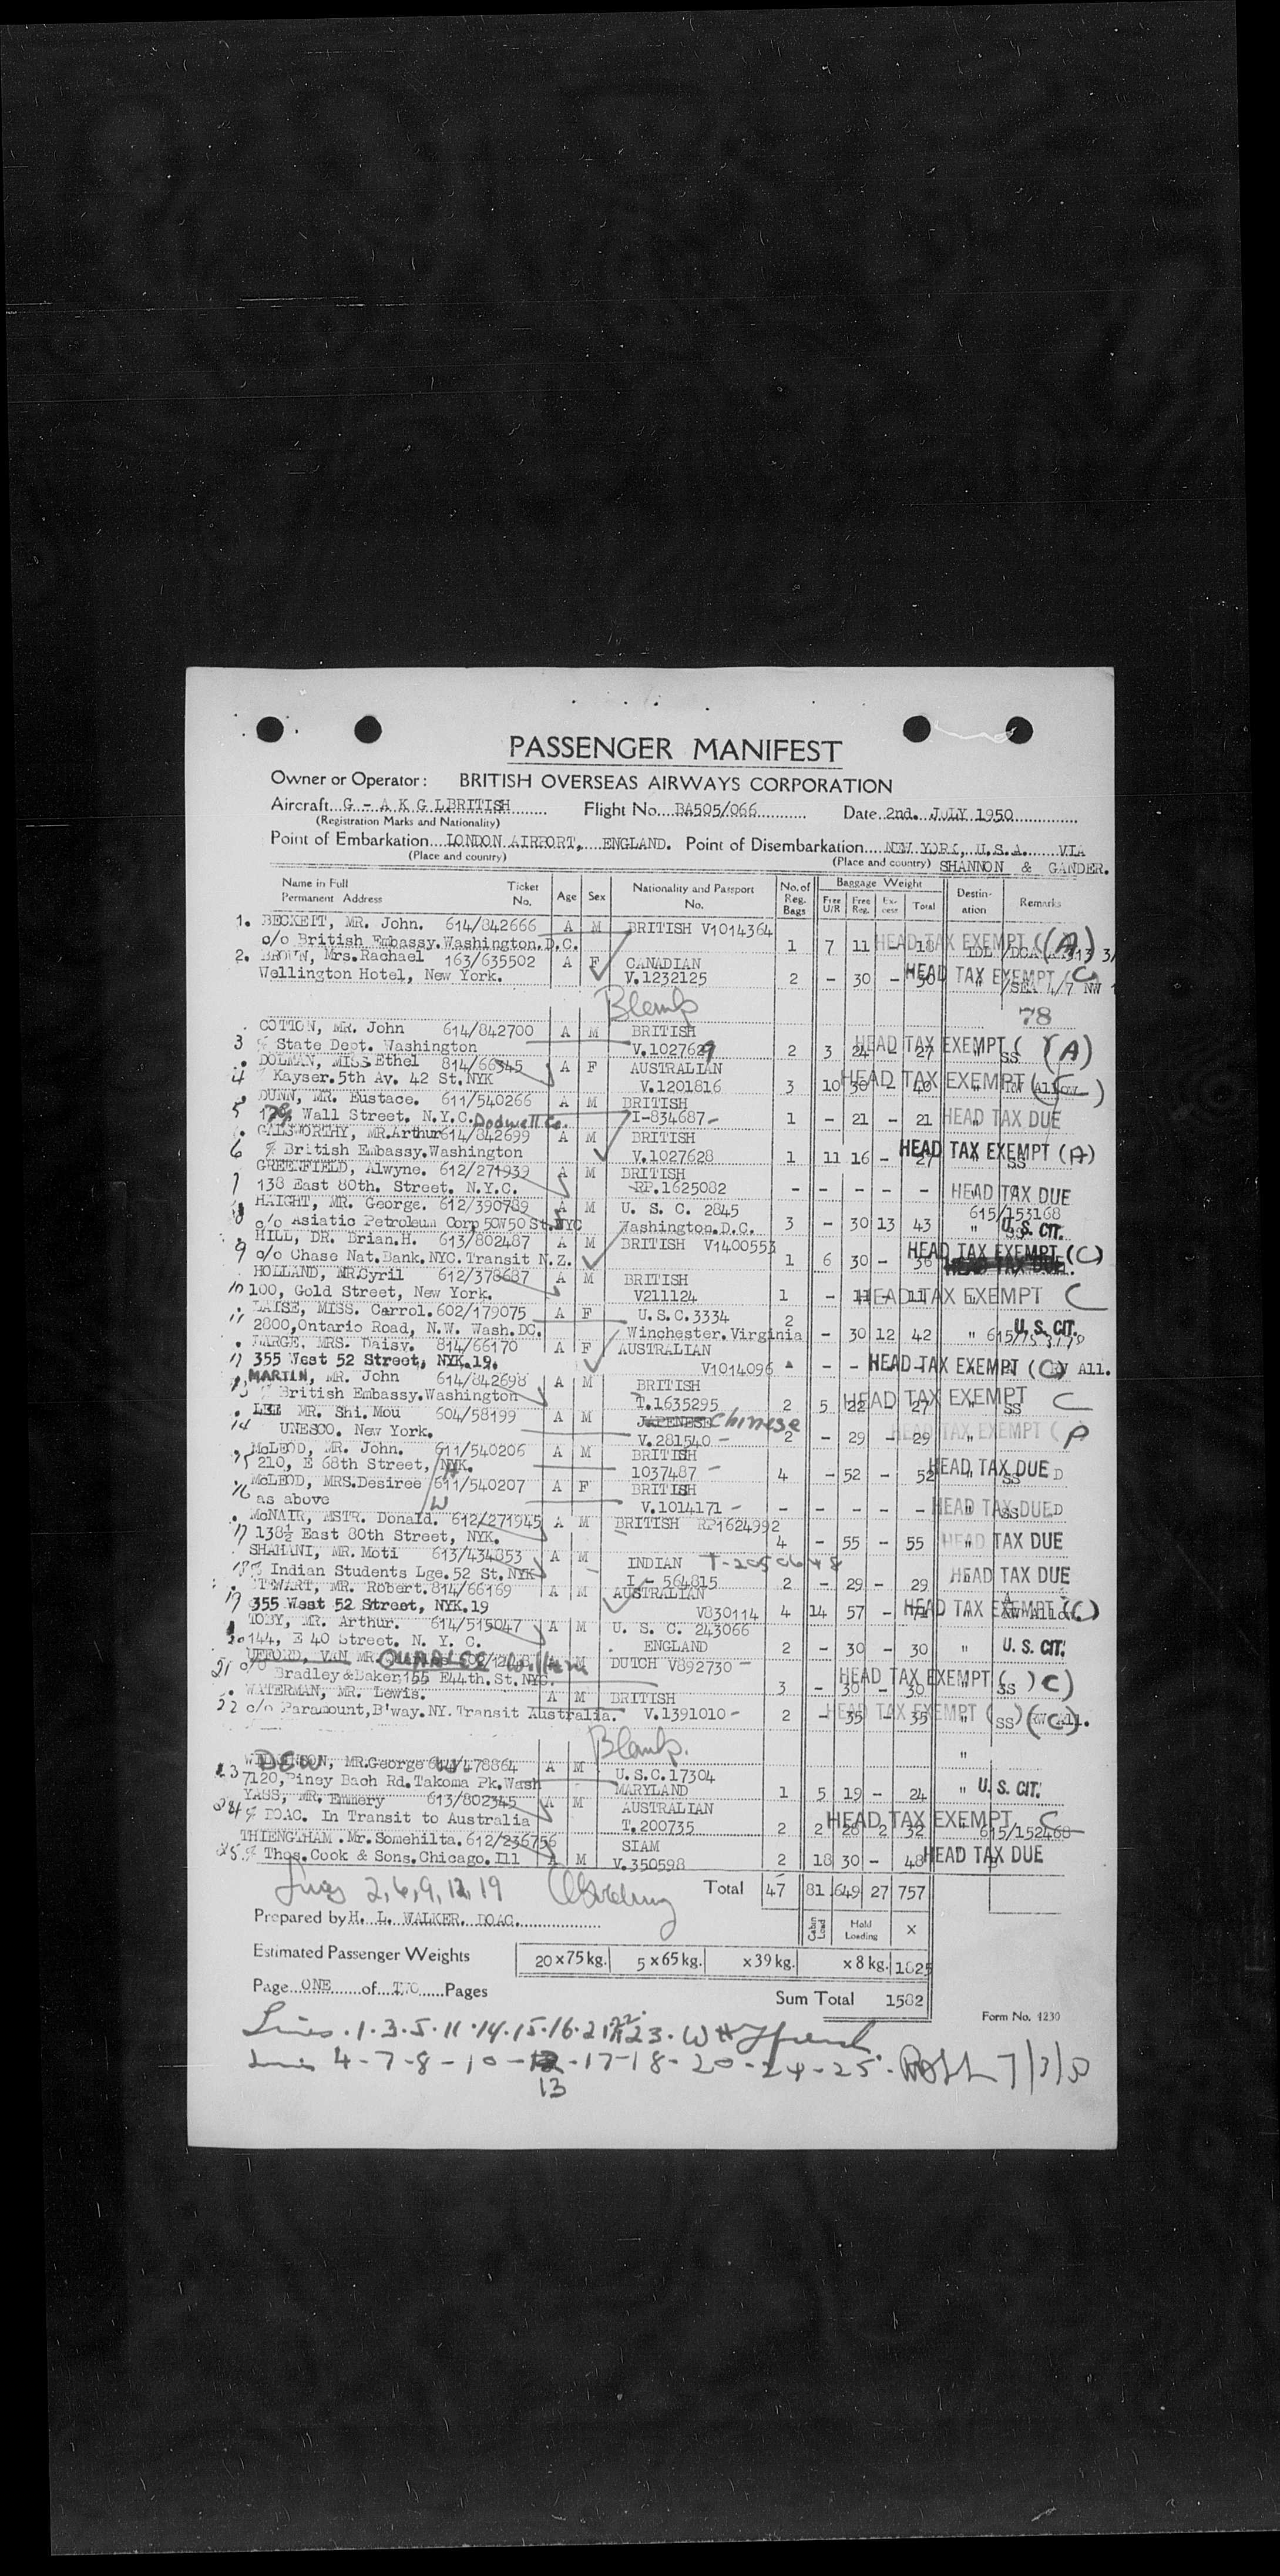 PASSENGER MANIFEST
Owner or Operator: BRITISH OVERSEAS AIRWAYS CORPORATION
Aircraft G - A K G L BRITISH Flight No. BA505/066 Date 2nd. JULY 1950
(Registration Marks and Nationality)
Point of Embarkation LONDON AIRPORT, ENGLAND. Point of Disembarkation NEW YORK, U.S.A. VIA
(Place and country) (Place and country) SHANNON & GANDER.
Name in Full Permanent Address Ticket No. Age Sex Nationality and Passport No. No. of Reg. Bags Baggage Weight Free U/R Free Reg. Excess Total Destination Remarks
1. BECKETT, MR. John. 614/842666 A M BRITISH V1014364
c/o British Embassy. Washington. D.C. 1 7 11 18 HEAD TAX EXEMPT (A)
2. BROWN, Mrs. Rachael 163/635502 A F CANADIAN
Wellington Hotel, New York. V.1232125 2 - 30 - 30 HEAD TAX EXEMPT C
Blank
78
COTTON, MR. John 614/842700 A M BRITISH
3 % State Dept. Washington V.1027629 2 3 24 - 27 HEAD TAX EXEMPT (A) SS
DOLMAN, MISS Ethel 814/66345 A F AUSTRALIAN
4 % Kayser. 5th Av. 42 St. NYK V.1201816 3 10 30 - 40 HEAD TAX EXEMPT (C)
DUNN, MR. Eustace. 611/540266 A M BRITISH
5 Wall Street. N.Y.C. Dodwell Co. I-834687- 1 - 21 - 21 HEAD TAX DUE
GALSWORTHY, MR. Arthur 614/842699 A M BRITISH
6 % British Embassy. Washington V.1027628 1 11 16 - 27 HEAD TAX EXEMPT (A) SS
GREENFIELD, Alwyne. 612/271939 A M BRITISH
7 138 East 80th. Street. N.Y.C. RP.1625082 - - - - - HEAD TAX DUE
HAIGHT, MR. George. 612/390789 A M U. S. C. 2845 615/153168
8 c/o Asiatic Petroleum Corp 50W50 St. NYC Washington. D.C. 3 - 30 13 43 " U. S. CIT.
HILL, DR. Brian. H. 613/802487 A M BRITISH V1400553
9 c/o Chase Nat. Bank. NYC. Transit N.Z. 1 6 30 - 36 HEAD TAX EXEMPT (C)
HOLLAND, MR. Cyril 612/378687 A M BRITISH
10 100, Gold Street, New York. V211124 1 - 11 - 11 HEAD TAX EXEMPT C
LAISE, MISS. Carrol. 602/179075 A F U.S.C. 3334 2
11 2800, Ontario Road, N.W. Wash. DC. Winchester. Virginia - 30 12 42 " U. S. CIT.
LARGE, MRS. Daisy. 814/66170 A F AUSTRALIAN
12 355 West 52 Street, NYK. 19. V1014096 - - HEAD TAX EXEMPT (C) All.
MARTIN, MR. John 614/842698 A M BRITISH
13 % British Embassy. Washington T.1635295 2 5 22 - 27 HEAD TAX EXEMPT C SS
MR. Shi. Mou 604/58199 A M JAPENESE Chinese
14 UNESCO. New York. V.281540 - 2 - 29 - 29 HEAD TAX EXEMPT (A
McLEOD, MR. John. 611/540206 A M BRITISH
15 210, E 68th Street, NYK. 1037487 - 4 - 52 - 52 HEAD TAX DUE SS
McLEOD, MRS. Desiree 611/540207 A F BRITISH
16 as above V.1014171 - - - - - - HEAD TAX DUE SS
McNAIR, MSTR. Donald. 612/271945 A M BRITISH RP1624992
17 138½ East 80th Street, NYK. 4 - 55 - 55 HEAD TAX DUE
SHAHANI, MR. Moti 613/434853 A M INDIAN T-2050648
18 % Indian Students Lge. 52 St. NYK I - 564815 2 - 29 - 29 HEAD TAX DUE
STEWART, MR. Robert. 814/66169 A M AUSTRALIAN
19 355 West 52 Street, NYK. 19 V830114 4 14 57 - 71 HEAD TAX EXEMPT (C)
TOBY, MR. Arthur. 614/515047 A M U. S. C. 243066
20 144, E 40 Street. N. Y. C. ENGLAND 2 - 30 - 30 " U. S. CIT.
UFFORD, VAN MR. William A M DUTCH V892730 -
21 c/o Bradley & Baker, 155 E44th. St. NYC. 3 - 30 - 30 HEAD TAX EXEMPT (C) SS
WATERMAN, MR. Lewis. A M BRITISH
22 c/o Paramount, B'way. NY. Transit Australia. V.1391010 - 2 - 35 - 35 HEAD TAX EXEMPT (C) SS All.
Blank.
MR. George 478864 A M U.S.C. 17304
23 7120, Piney Bach Rd. Takoma Pk. Wash MARYLAND 1 5 19 - 24 " U. S. CIT.
YASS, MR. Emmery 613/802345 A M AUSTRALIAN
24 % BOAC. In Transit to Australia T.200735 2 2 28 2 32 HEAD TAX EXEMPT C 615/152468
THIENGTHAM. Mr. Somchilta. 612/236756 SIAM
25. % Thos. Cook & Sons. Chicago. Ill A M V.350598 2 18 30 - 48 HEAD TAX DUE
Lines 2, 6, 9, 12, 19
Total 47 81 649 27 757
Prepared by H. L. WALKER. BOAC.
Cabin Load Hold Loading X
Estimated Passenger Weights 20 x 75 kg. 5 x 65 kg. x 39 kg. x 8 kg. 1825
Page ONE of TWO Pages
Sum Total 1582
Form No. 1230
Lines. 1. 3. 5. 11. 14. 15. 16. 21. 22. 23.
Lines 4-7-8-10-13-17-18-20-24-25. 7/3/50